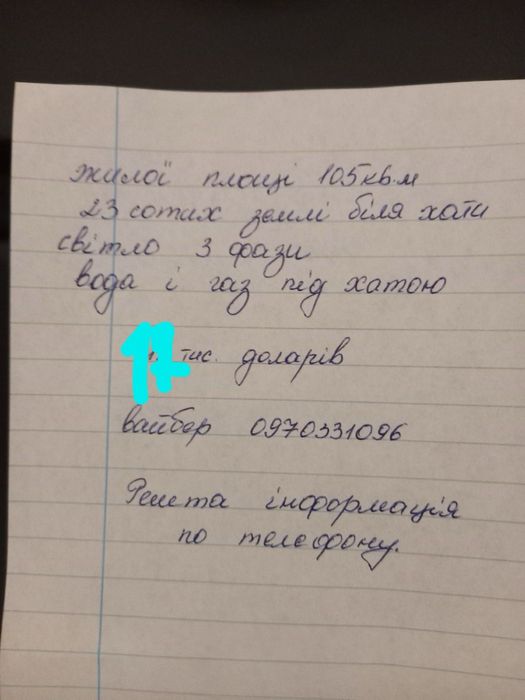 жилої площі 105кв.м
23 сотих землі біля хати
світло 3 фази
вода і газ під хатою
17 тис. доларів
вайбер 0970331096
Решта інформація
по телефону.